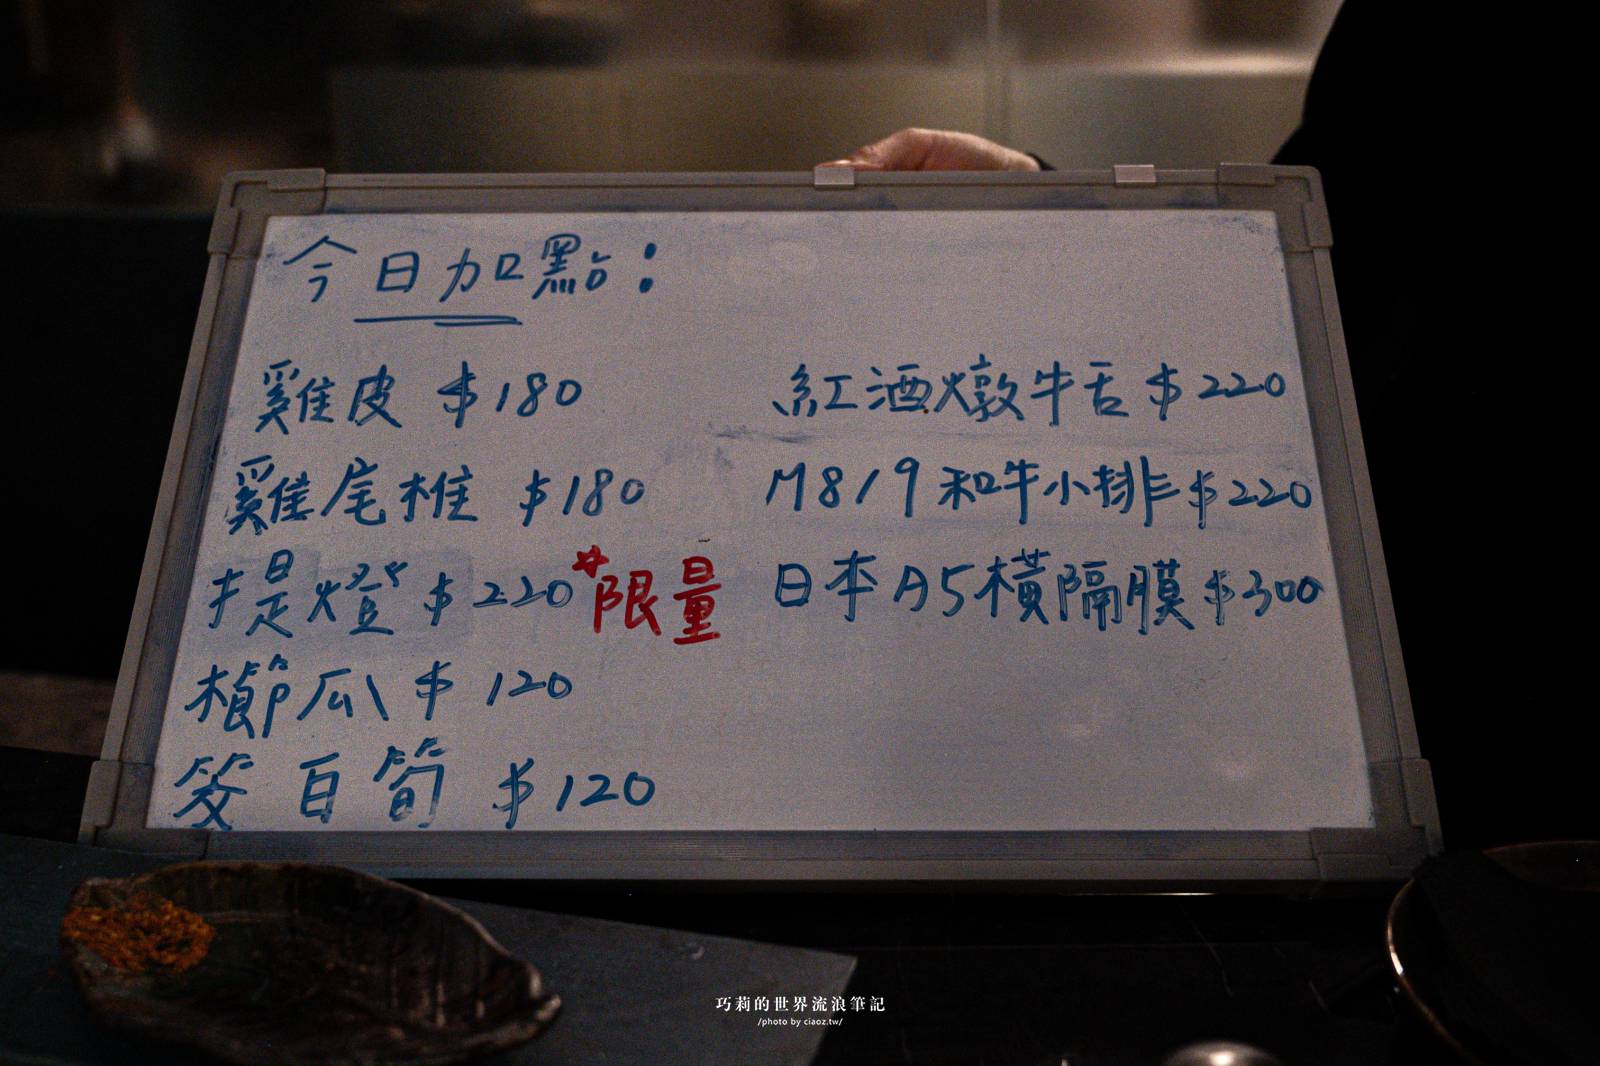 今日加點:
雞皮 $180
雞尾椎 $180
提燈 $220 *限量
櫛瓜 $120
筊白筍 $120
紅酒燉牛舌 $220
M8/9和牛小排 $220
日本A5橫隔膜 $300
巧莉的世界流浪筆記
/photo by ciaoz.tw/